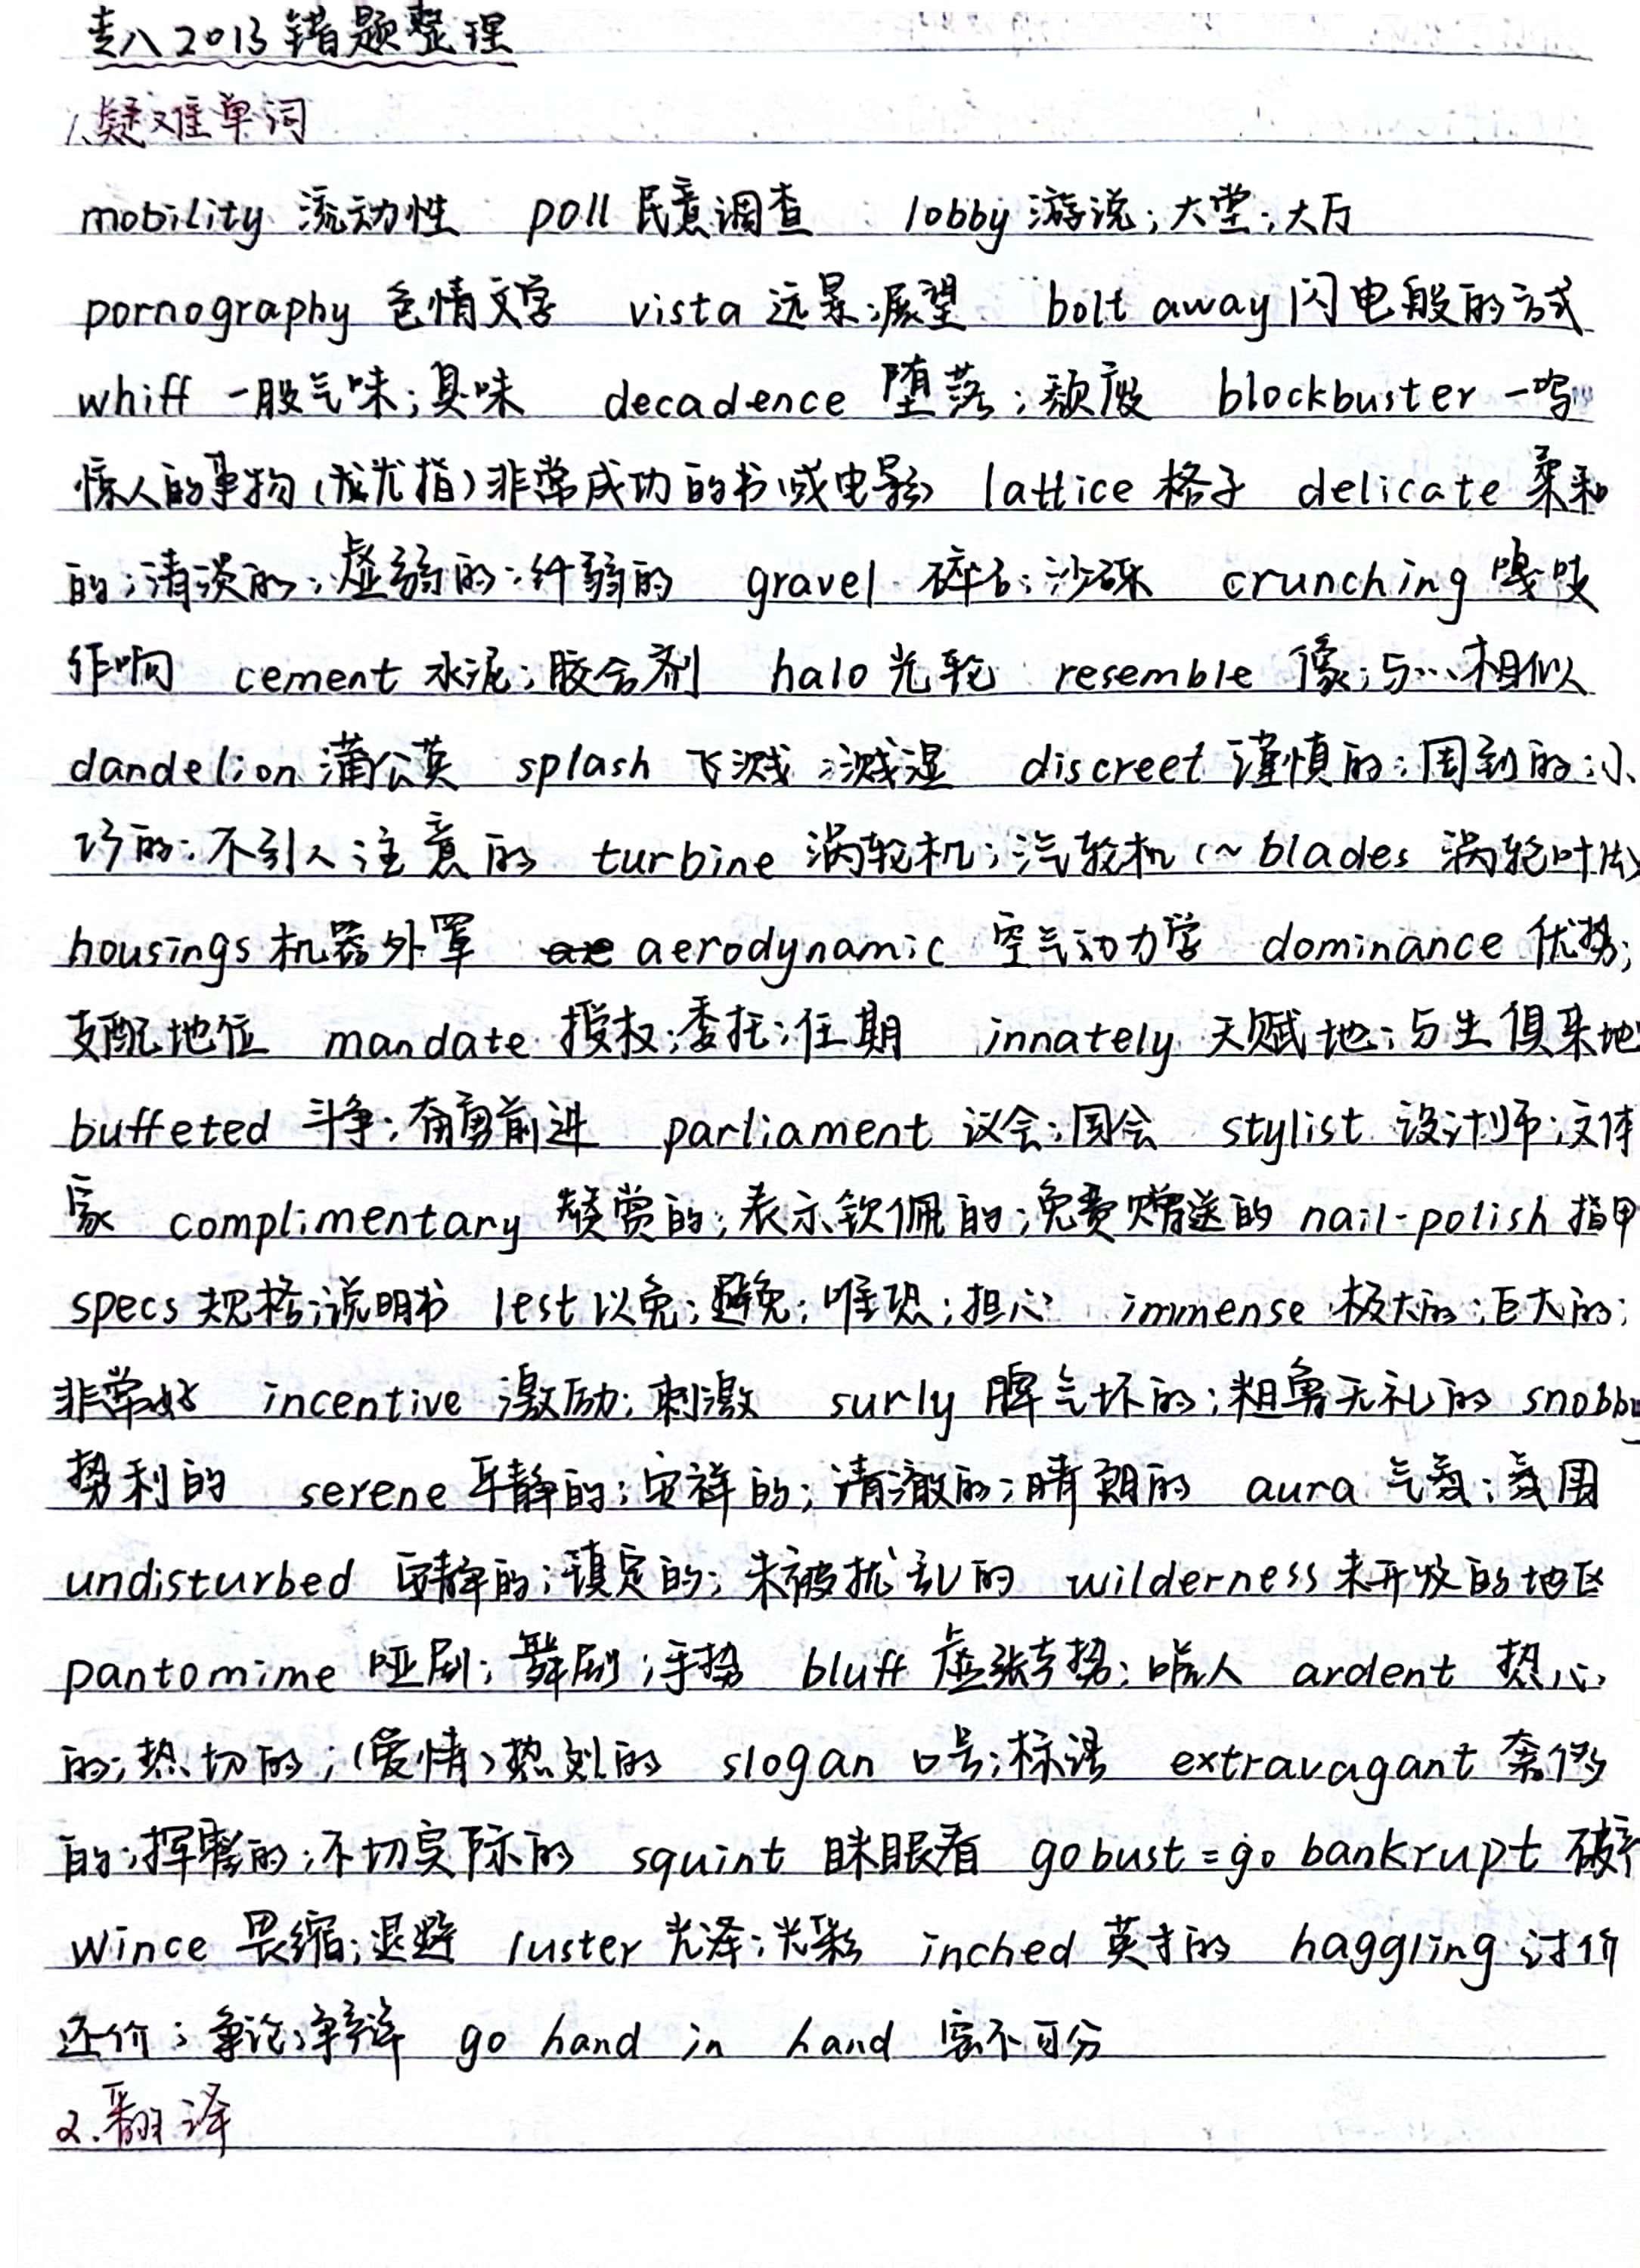 专八2013错题整理
1.疑难单词
mobility 流动性 poll 民意调查 lobby 游说;大堂;大厅
pornography 色情文字 vista 远景;展望 bolt away 闪电般的方式
whiff 一股气味;臭味 decadence 堕落;颓废 blockbuster 一鸣
惊人的事物(尤指)非常成功的书(或电影) lattice 格子 delicate 柔和
的;清淡的;虚弱的;纤弱的 gravel 碎石;沙砾 crunching 嘎吱
作响 cement 水泥;胶合剂 halo 光轮 resemble 像;与…相似
dandelion 蒲公英 splash 飞溅;溅湿 discreet 谨慎的;周到的;小
巧的;不引人注意的 turbine 涡轮机;汽轮机(~blades 涡轮叶片)
housings 机器外罩 aerodynamic 空气动力学 dominance 优势;
支配地位 mandate 授权;委托;任期 innately 天赋地;与生俱来地
buffeted 斗争;奋勇前进 parliament 议会;国会 stylist 设计师;文体
家 complimentary 赞赏的;表示钦佩的;免费赠送的 nail-polish 指甲
specs 规格;说明书 lest 以免;避免;唯恐;担心 immense 极大的;巨大的;
非常好 incentive 激励;刺激 surly 脾气坏的;粗鲁无礼的 snobby
势利的 serene 平静的;安祥的;清澈的;晴朗的 aura 气氛;氛围
undisturbed 安静的;镇定的;未被扰乱的 wilderness 未开发的地区
pantomime 哑剧;舞剧;手势 bluff 虚张声势;唬人 ardent 热心
的;热切的;(爱情)热烈的 slogan 口号;标语 extravagant 奢侈
的;挥霍的;不切实际的 squint 眯眼看 go bust = go bankrupt 破产
wince 畏缩;退避 luster 光泽;光彩 inched 英寸的 haggling 讨价
还价;争论;争辩 go hand in hand 密不可分
2.翻译